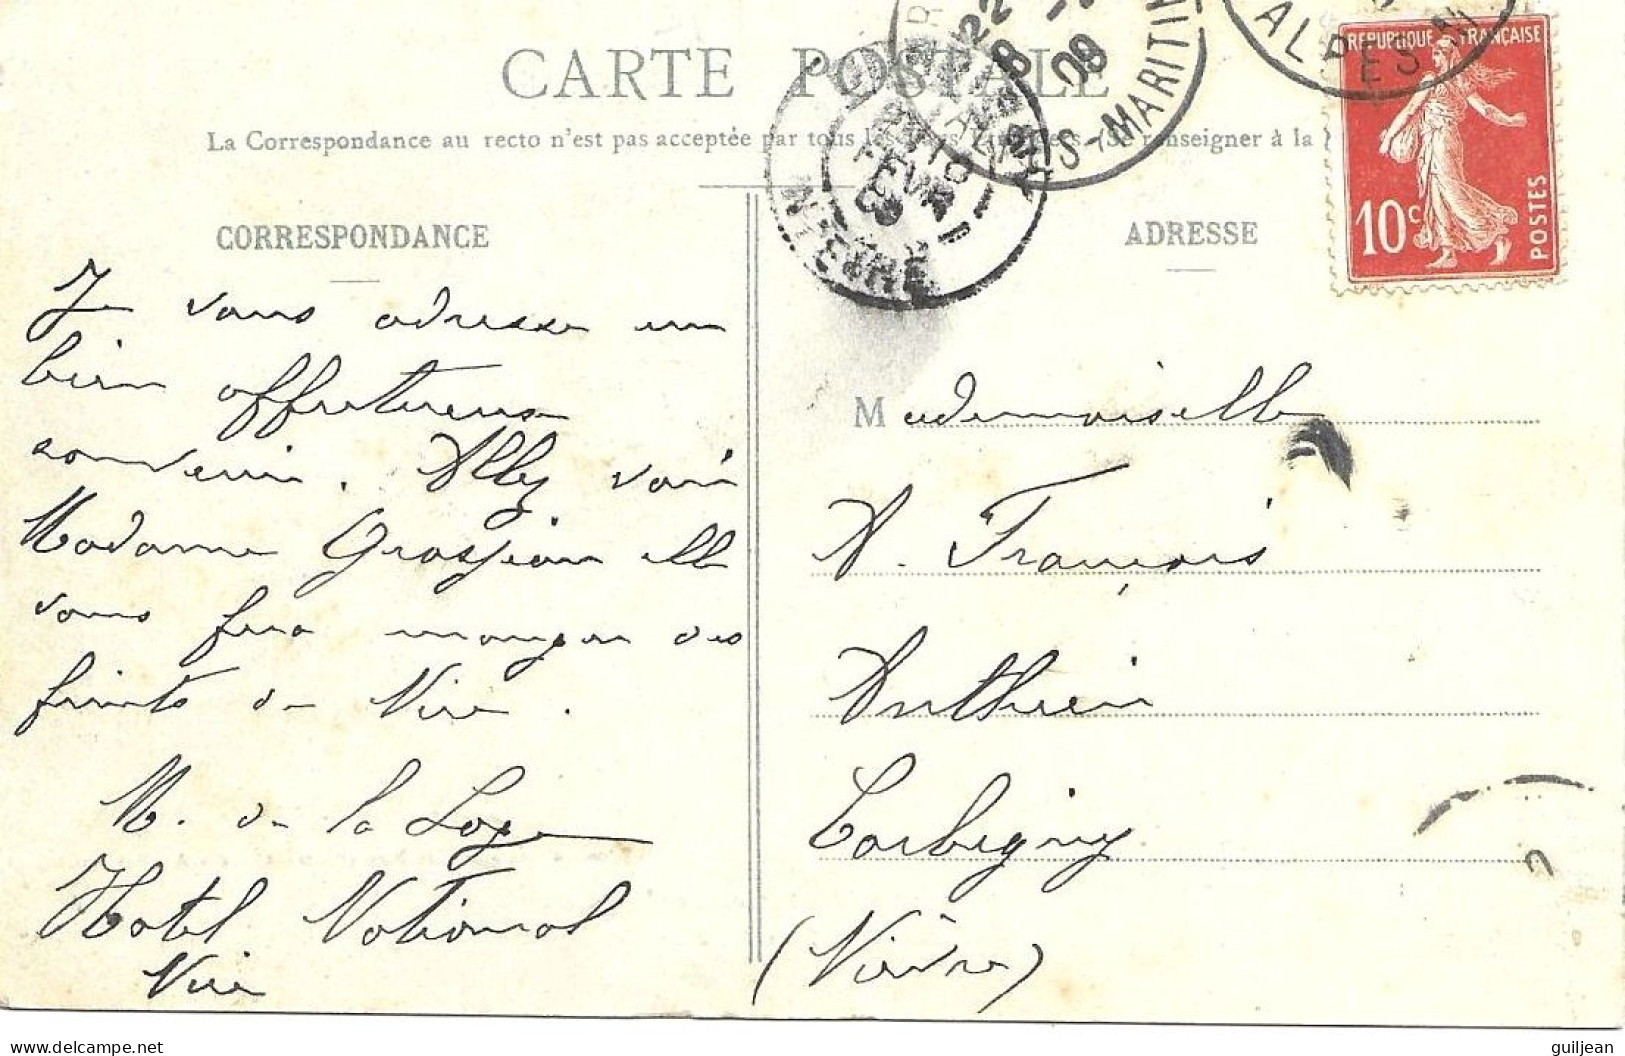 CARTE POSTALE
La Correspondance au recto n'est pas acceptée par tous les pays Etrangers (Se renseigner à la
REPUBLIQUE FRANÇAISE
10c
POSTES
ALPES-M
22
8
09
ES-MARITIM
NIÈVRE
CORRESPONDANCE
ADRESSE
Je vous adresse un
bien affectueux
souvenir. Allez voir
Madame Grosjean elle
vous fera manger des
fruits de Nice.
M. de la Loge
Hotel National
Nice
Mademoiselle
A. François
Anthien
Corbigny
(Nièvre)
guiljean